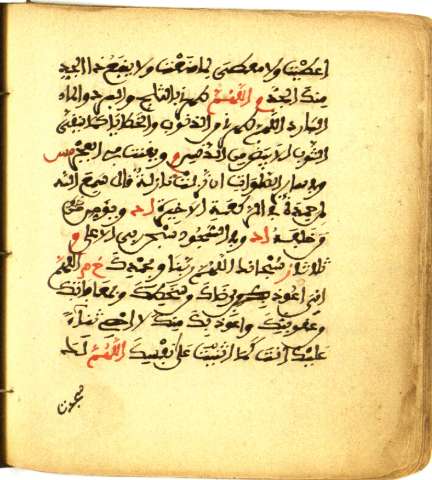 أعطيت ولا معطي لما منعت ولا ينفع ذا الجد
منك الجد م اللهم طهرني بالثلج والبرد والماء
البارد اللهم طهرني من الذنوب والخطايا كما ينقى
الثوب الابيض من الدنس م ويقنت في الفجر مس
وفي سائر الصلوات ان نزلت نازلة قال سمع الله
لمن حمده في الركعة الاخيرة ا د ويؤمن من
خلفه ا د وفي السجود سبحن ربي الاعلى م
ثلاثا ر سبحانك اللهم ربنا وبحمدك خ م اللهم
اني اعوذ برضاك من سخطك وبمعافاتك
من عقوبتك واعوذ بك منك لا احصي ثناء
عليك انت كما اثنيت على نفسك اللهم لك